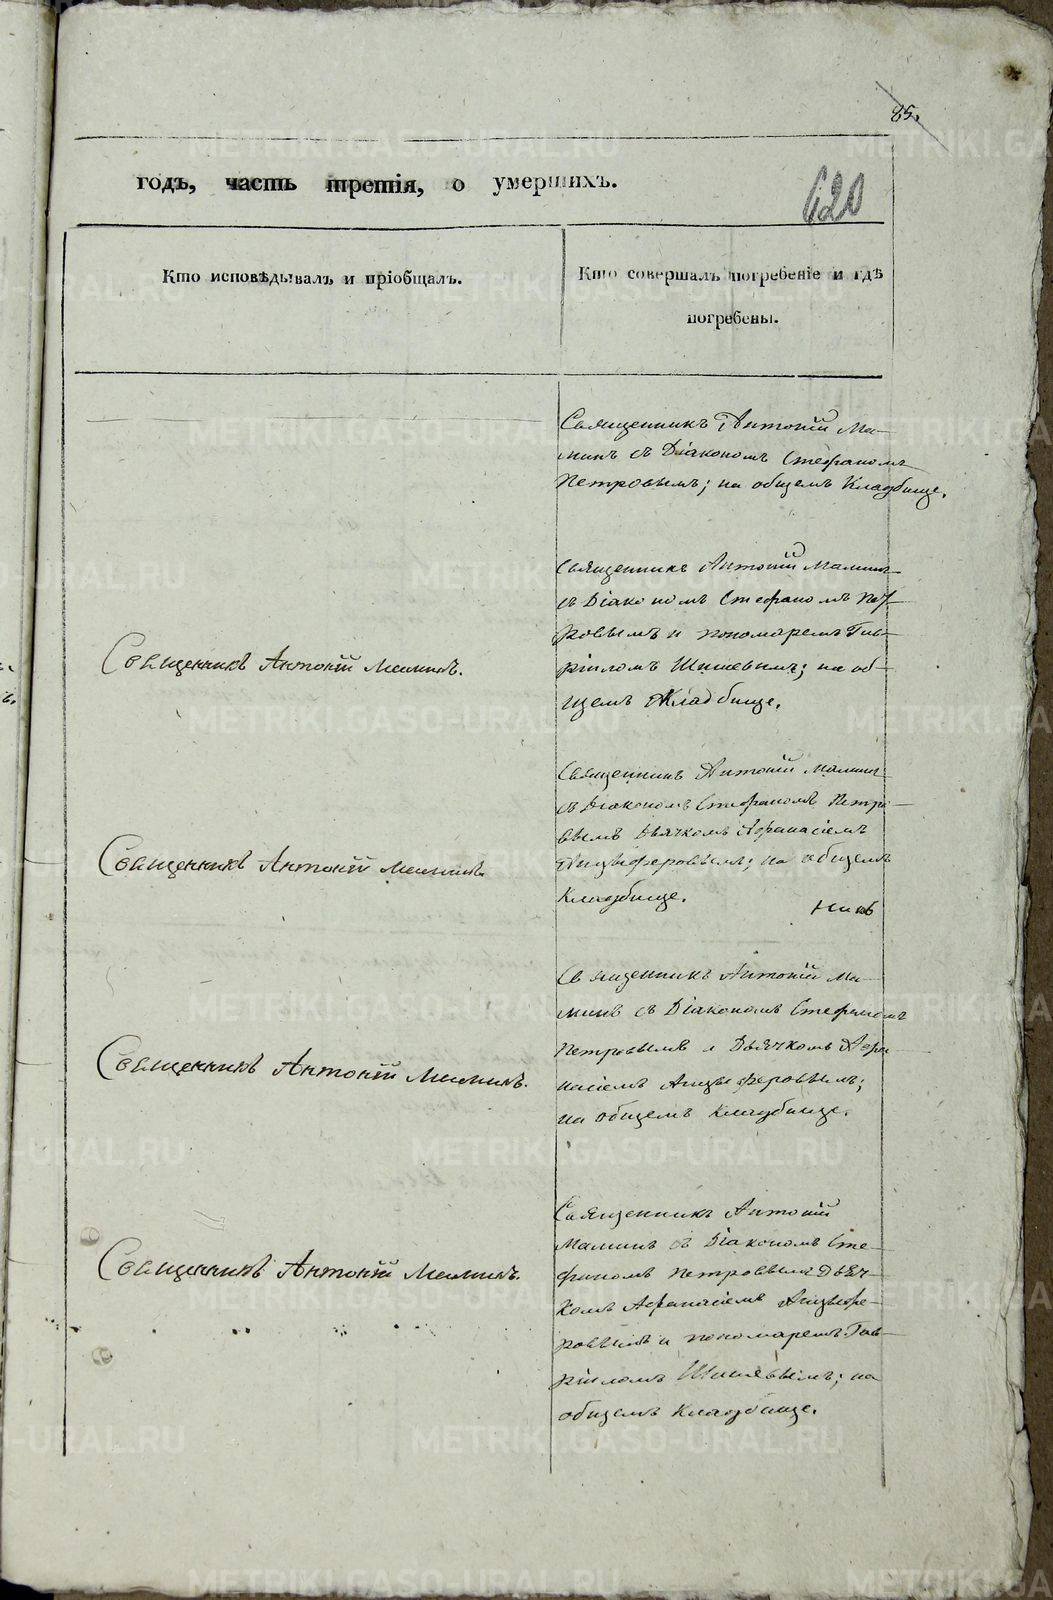 85.
620
годъ, часть третія, о умершихъ.
Кто исповѣдывалъ и пріобщалъ.
Кто совершалъ погребеніе и гдѣ
погребены.
Священникъ Антоній Ма-
минъ съ Діакономъ Стефаномъ
Петровымъ; на общемъ Кладбище.
Священникъ Антоній Маминъ.
Священникъ Антоній Маминъ
съ Діакономъ Стефаномъ Пет-
ровымъ и пономаремъ Гав-
рiиломъ Шишевымъ; на об-
щемъ Кладбище.
Священникъ Антоній Маминъ.
Священникъ Антоній Маминъ
съ Діакономъ Стефаномъ Петро-
вымъ Дьячкомъ Афанасіемъ
на общемъ
Кладбище.
Священникъ Антоній Маминъ.
Священникъ Антоній Ма-
минъ съ Діакономъ Стефаномъ
Петровымъ и Дьячкомъ Афа-
насіемъ
на общемъ Кладбище.
Священникъ Антоній Маминъ.
Священникъ Антоній
Маминъ съ Діакономъ Сте-
фаномъ Петровымъ Дьяч-
комъ Афанасіемъ
ровымъ и пономаремъ Гав-
рiиломъ Шишевымъ; на
общемъ Кладбище.
METRIKI.GASO-URAL.RU